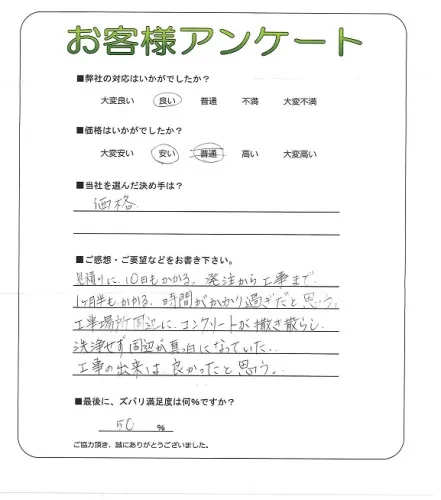 お客様アンケート
■弊社の対応はいかがでしたか？
大変良い 良い 普通 不満 大変不満
■価格はいかがでしたか？
大変安い 安い 普通 高い 大変高い
■当社を選んだ決め手は？
価格
■ご感想・ご要望などをお書き下さい。
見積りに、10日もかかる。発注から工事まで、
1ヶ月半もかかる。時間がかかり過ぎだと思う。
工事場所周辺に、コンクリートが撒き散らし、
洗浄せず周辺が真っ白になっていた。
工事の出来は良かったと思う。
■最後に、ズバリ満足度は何%ですか？
50 %
ご協力頂き、誠にありがとうございました。